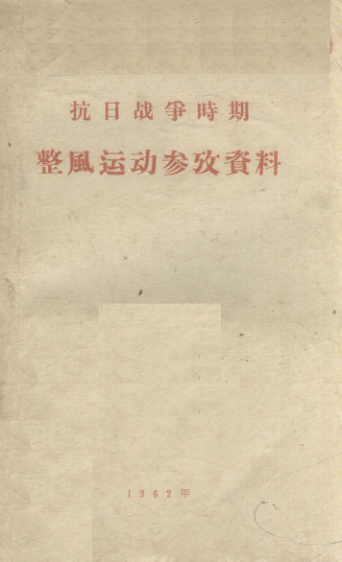 抗日战爭時期
整風运动参攷資料
1962年